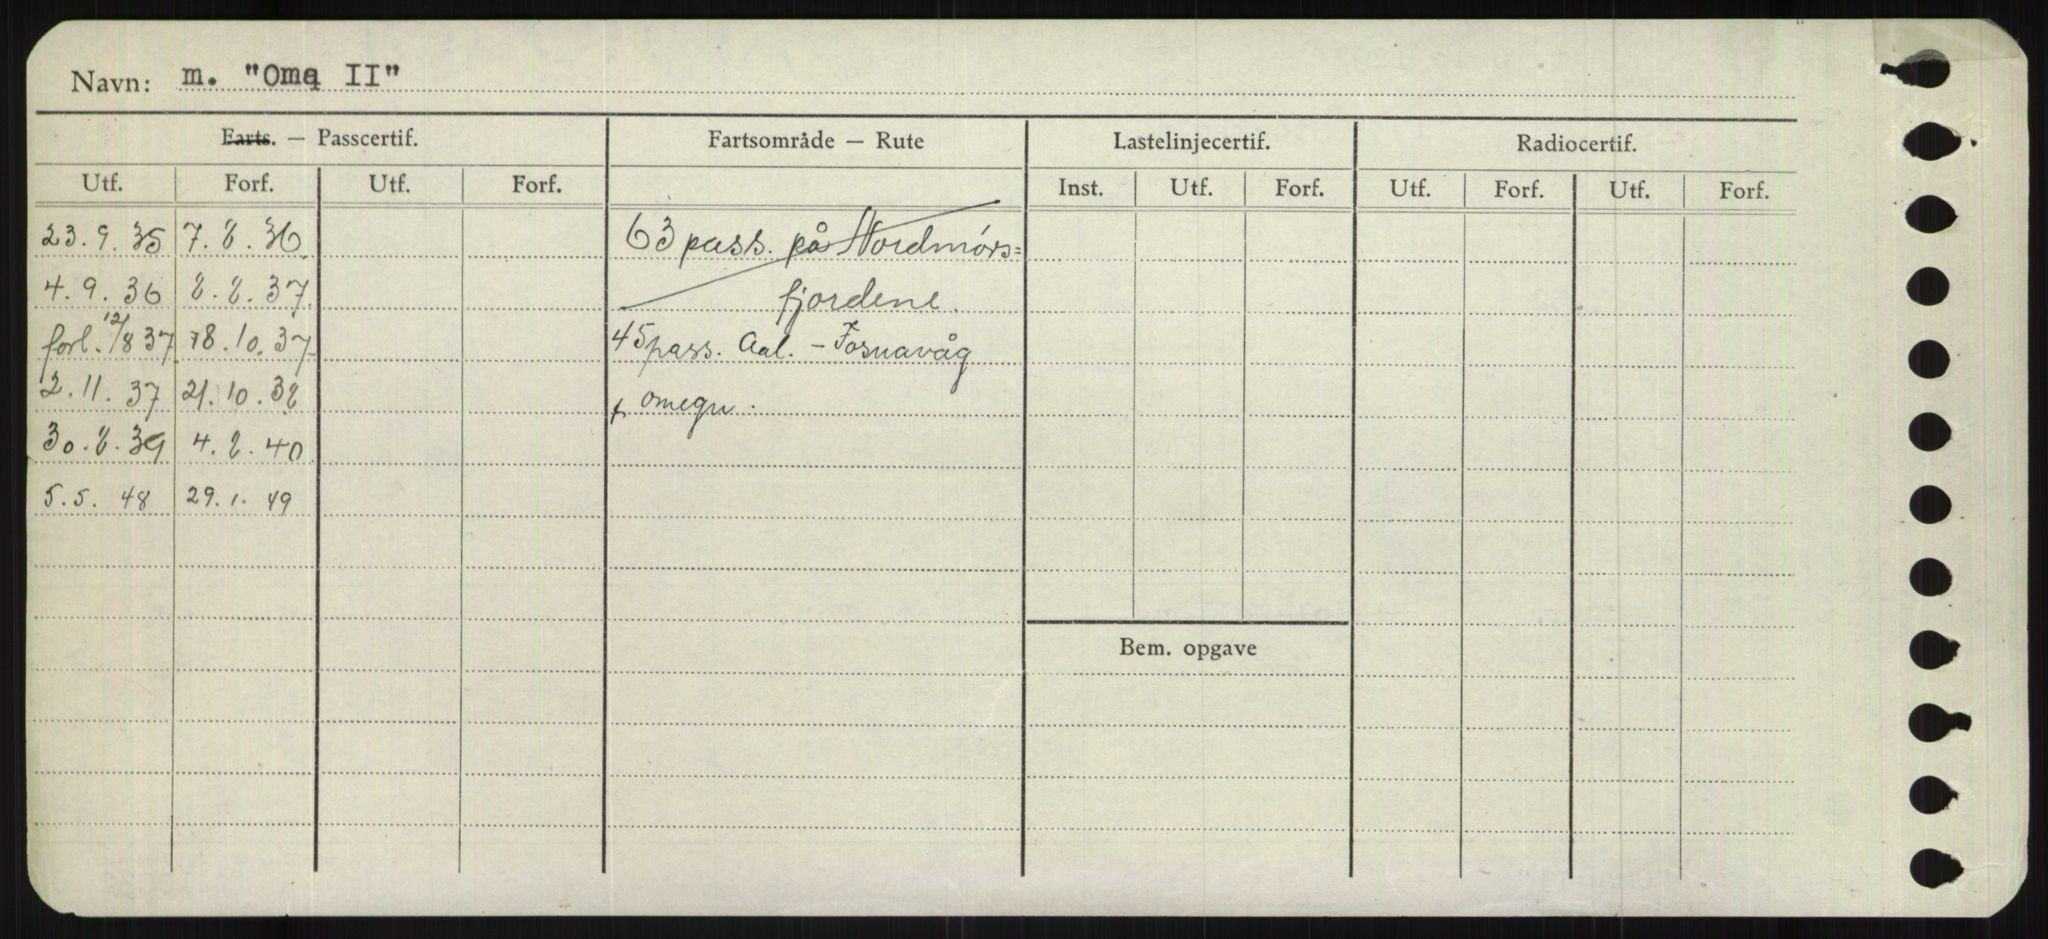 Navn: m. "Oma II"
Farts. — Passcertif. Fartsområde — Rute Lastelinjecertif. Radiocertif.
Utf. Forf. Utf. Forf. Inst. Utf. Forf. Utf. Forf. Utf. Forf.
23.9.35 7.8.36 63 pass. på Nordmørs=
4.9.36 8.8.37 fjordene.
forl. 12/8 37 18.10.37 45 pass. Aal. - Fosnavåg
2.11.37 21.10.38 omegn.
30.8.39 4.8.40
5.5.48 29.1.49
Bem. opgave